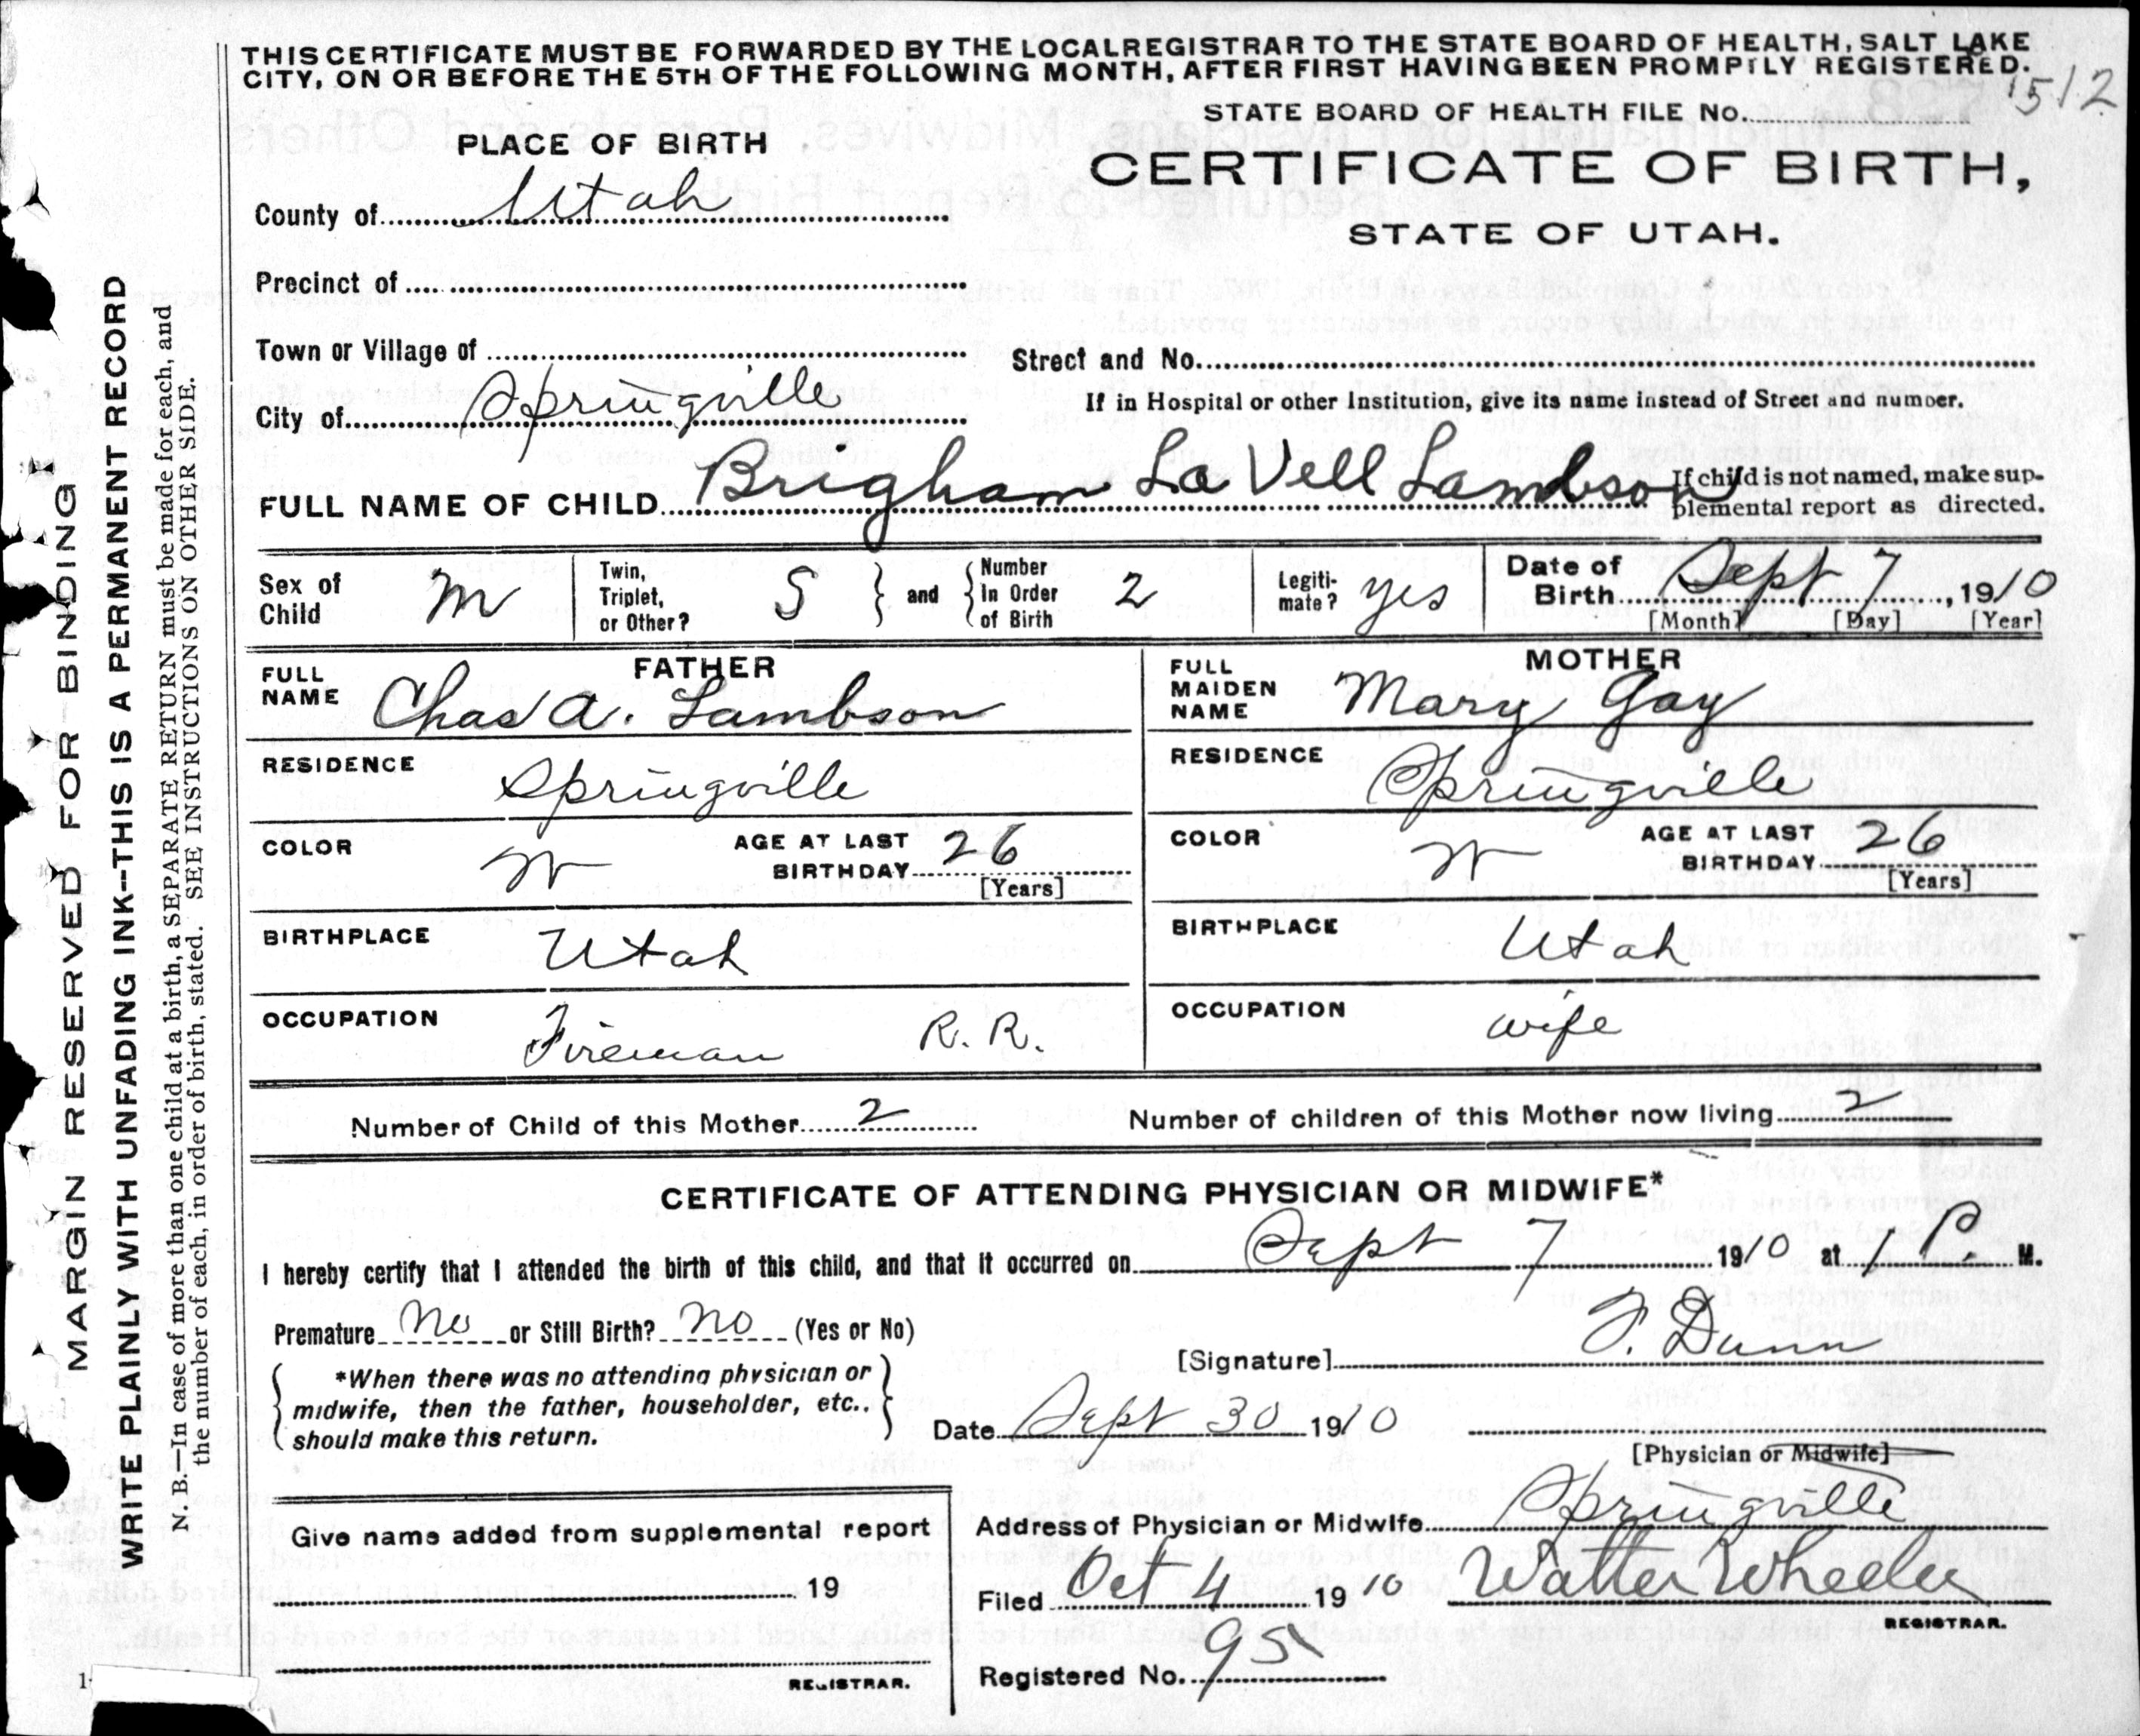 THIS CERTIFICATE MUST BE FORWARDED BY THE LOCAL REGISTRAR TO THE STATE BOARD OF HEALTH, SALT LAKE
CITY, ON OR BEFORE THE 5TH OF THE FOLLOWING MONTH, AFTER FIRST HAVING BEEN PROMPTLY REGISTERED.
1512
STATE BOARD OF HEALTH FILE No.
PLACE OF BIRTH
CERTIFICATE OF BIRTH,
County of Utah
STATE OF UTAH.
Precinct of
Town or Village of
Street and No.
City of Springville
If in Hospital or other Institution, give its name instead of Street and number.
FULL NAME OF CHILD Brigham La Vell Lambson
If child is not named, make sup-
plemental report as directed.
Sex of Child M
Twin, Triplet, or Other? S
and
Number In Order of Birth 2
Legiti-mate? yes
Date of Birth Sept 7, 1910
[Month] [Day] [Year]
FATHER
FULL NAME Chas A. Lambson
RESIDENCE Springville
COLOR W
AGE AT LAST BIRTHDAY 26
[Years]
BIRTHPLACE Utah
OCCUPATION Fireman R. R.
MOTHER
FULL MAIDEN NAME Mary Gay
RESIDENCE Springville
COLOR W
AGE AT LAST BIRTHDAY 26
[Years]
BIRTHPLACE Utah
OCCUPATION wife
Number of Child of this Mother 2
Number of children of this Mother now living 2
CERTIFICATE OF ATTENDING PHYSICIAN OR MIDWIFE*
I hereby certify that I attended the birth of this child, and that it occurred on Sept 7 1910 at 1 P. M.
Premature No or Still Birth? No (Yes or No)
*When there was no attending physician or
midwife, then the father, householder, etc.,
should make this return.
[Signature] F. Dunn
Date Sept 30 1910
[Physician or Midwife]
Give name added from supplemental report
19
REGISTRAR.
Address of Physician or Midwife Springville
Filed Oct 4 1910 Walter Wheeler
REGISTRAR.
Registered No. 95
MARGIN RESERVED FOR BINDING
WRITE PLAINLY WITH UNFADING INK--THIS IS A PERMANENT RECORD
N. B.—In case of more than one child at a birth, a SEPARATE RETURN must be made for each, and
the number of each, in order of birth, stated. SEE INSTRUCTIONS ON OTHER SIDE.